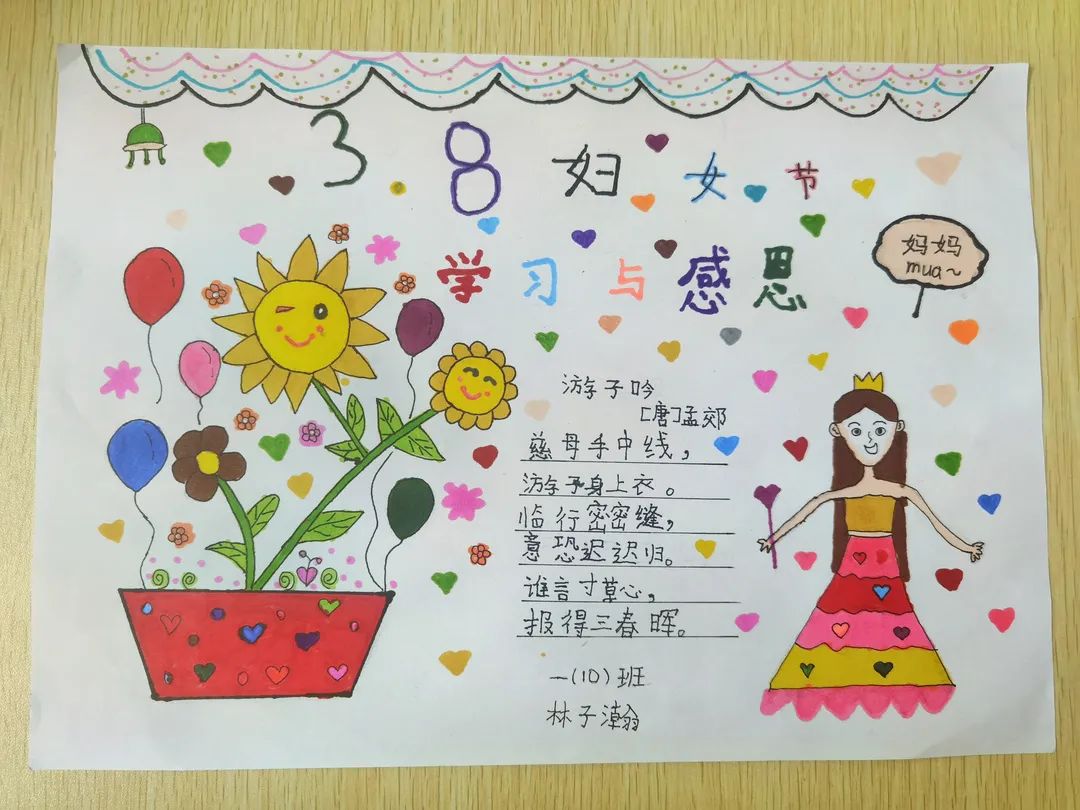 38妇女节
学习与感恩
妈妈
mua~
游子吟
[唐]孟郊
慈母手中线，
游子身上衣。
临行密密缝，
意恐迟迟归。
谁言寸草心，
报得三春晖。
一(10)班
林子瀚